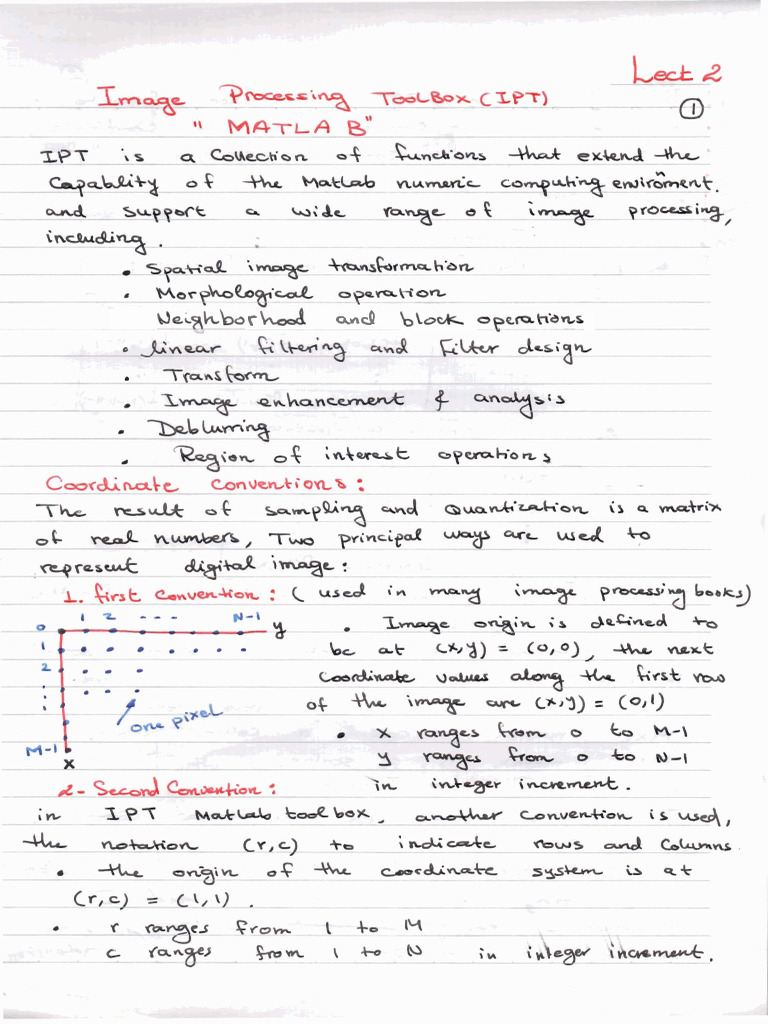 Lect 2
Image Processing ToolBox (IPT)
①
" MATLAB"
IPT is a Collection of functions that extend the
Capablity of the Matlab numeric computing enviroment.
and support a wide range of image processing,
including.
• Spatial image transformation
• Morphological operation
Neighborhood and block operations
• linear filtering and Filter design
• Transform
• Image enhancement & analysis
• Deblurring
• Region of interest operations
Coordinate conventions:
The result of sampling and Quantization is a matrix
of real numbers, Two principal ways are used to
represent digital image:
1. first Convention: ( used in many image processing books)
1 2 --- N-1
0 y
1
2
M-1
x
one pixel
• Image origin is defined to
be at (x,y) = (0,0), the next
Coordinate values along the first row
of the image are (x,y) = (0,1)
• x ranges from 0 to M-1
y ranges from 0 to N-1
in integer increment.
2- Second Convention:
in IPT Matlab toolbox, another convention is used,
the notation (r,c) to indicate rows and Columns
• the origin of the coordinate system is at
(r,c) = (1,1).
• r ranges from 1 to M
c ranges from 1 to N in integer increment.